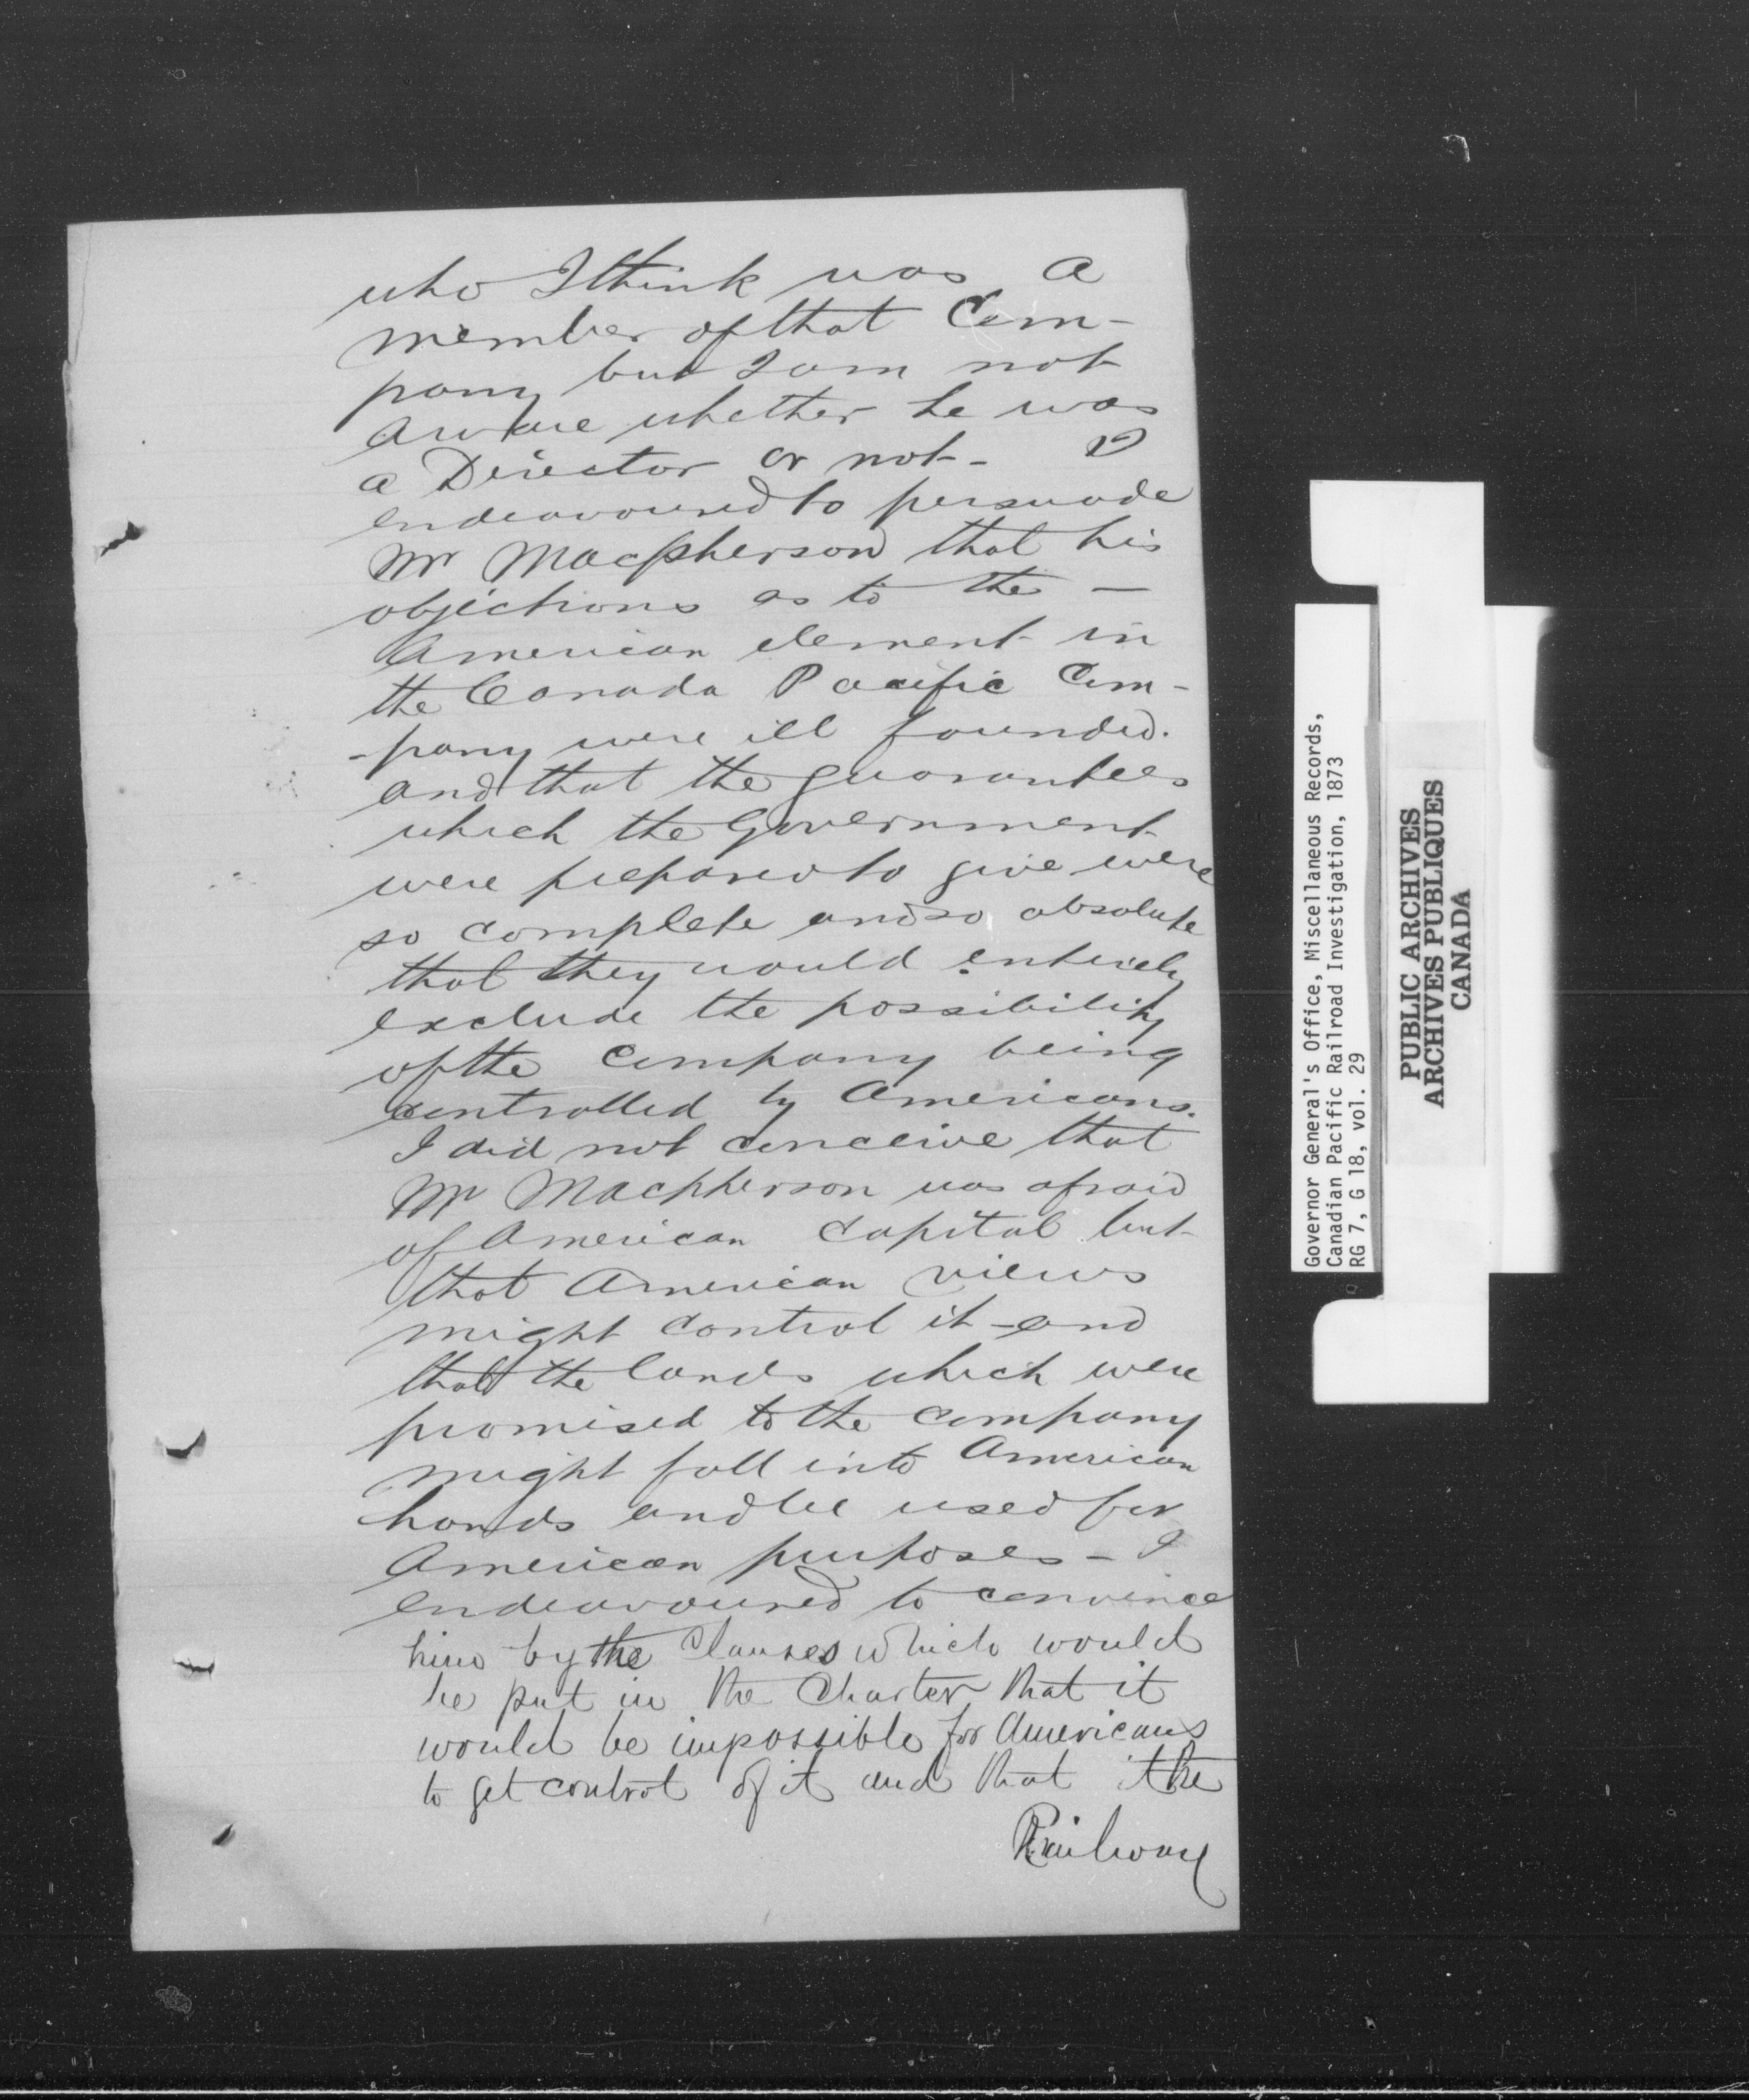 who I think was a
member of that Com-
pany but I am not
aware whether he was
a Director or not - I
endeavoured to persuade
Mr Macpherson that his
objections as to the -
American element in
the Canada Pacific Com-
-pany were ill founded.
and that the guarantees
which the Government
were prepared to give were
so complete and so absolute
that they would entirely
exclude the possibility
of the Company being
controlled by Americans.
I did not conceive that
Mr Macpherson was afraid
of American Capital but
that American views
might control it - and
that the lands which were
promised to the Company
might fall into American
hands and be used for
American purposes - I
endeavoured to convince
him by the Clauses which would
be put in the Charter that it
would be impossible for Americans
to get control of it and that the
Railway
Governor General's Office, Miscellaneous Records,
Canadian Pacific Railroad Investigation, 1873
RG 7, G 18, vol. 29
PUBLIC ARCHIVES
ARCHIVES PUBLIQUES
CANADA